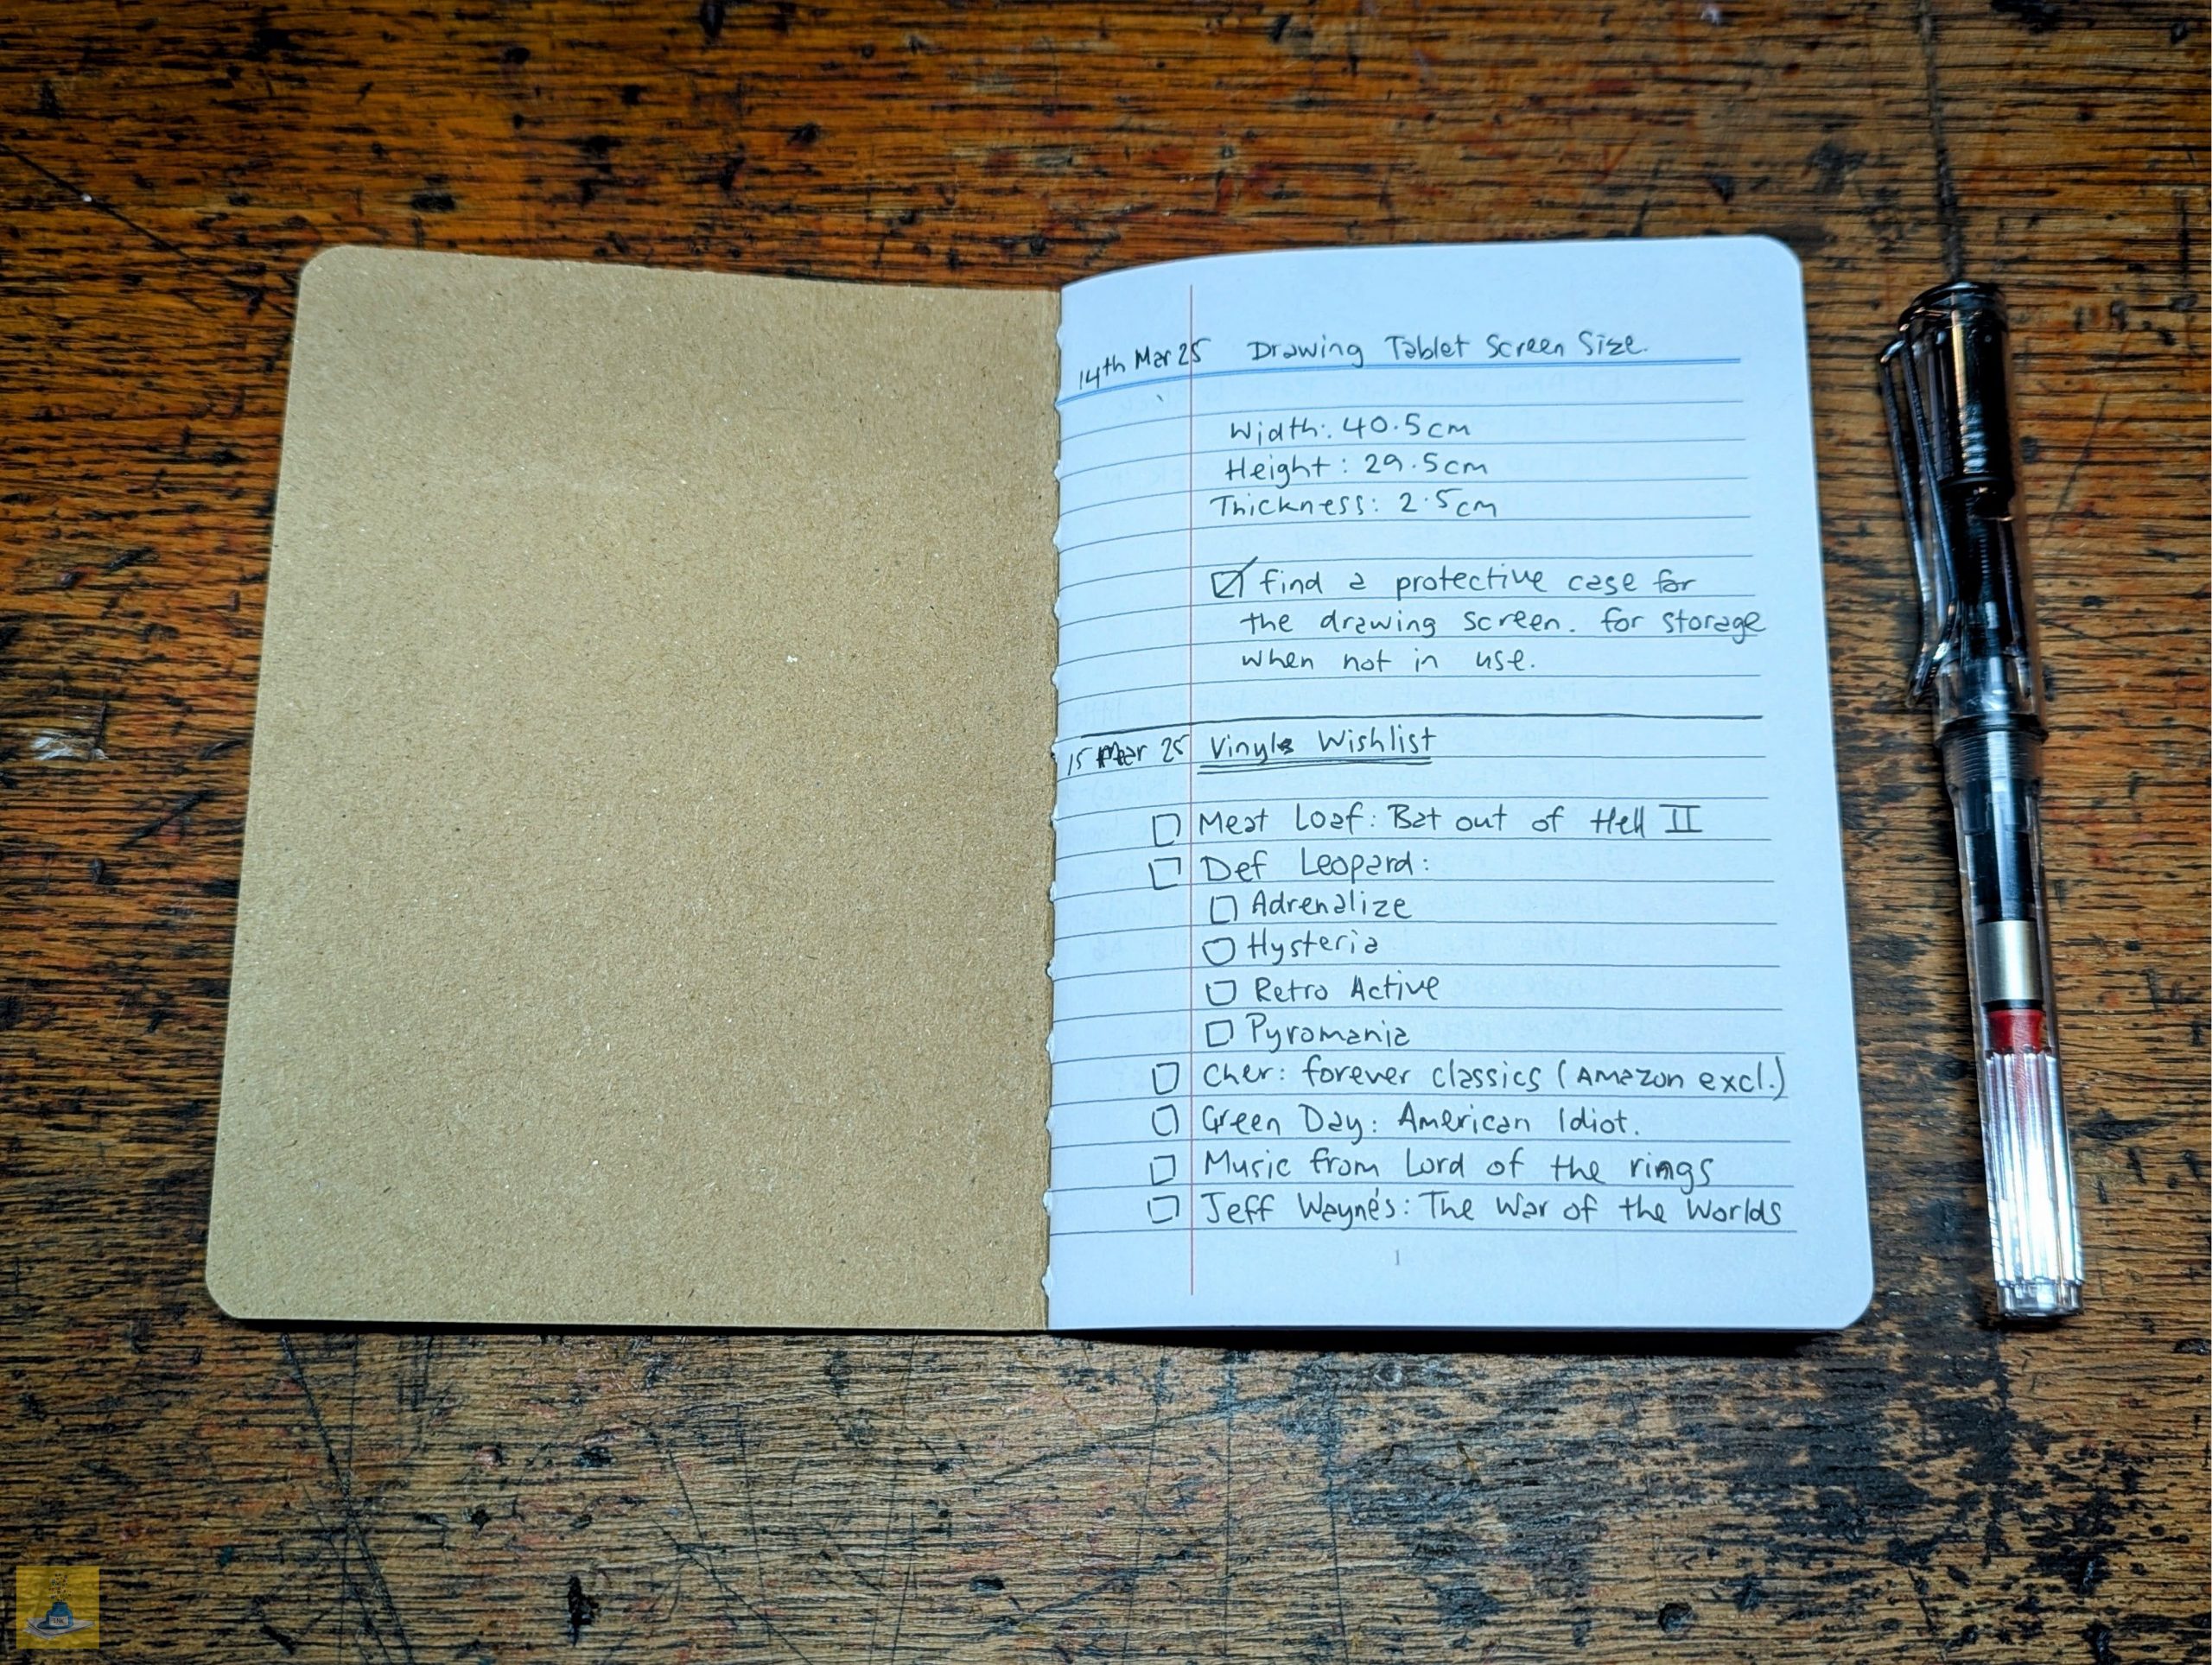 14th Mar 25 Drawing Tablet Screen Size.
Width: 40.5cm
Height: 29.5cm
Thickness: 2.5cm
☑ find a protective case for
the drawing screen. for storage
when not in use.
15 Mar 25 Vinyls Wishlist
☐ Meat Loaf: Bat out of Hell II
☐ Def Leopard:
☐ Adrenalize
☐ Hysteria
☐ Retro Active
☐ Pyromania
☐ Cher: forever classics (Amazon excl.)
☐ Green Day: American Idiot.
☐ Music from Lord of the rings
☐ Jeff Wayne's: The War of the Worlds
1